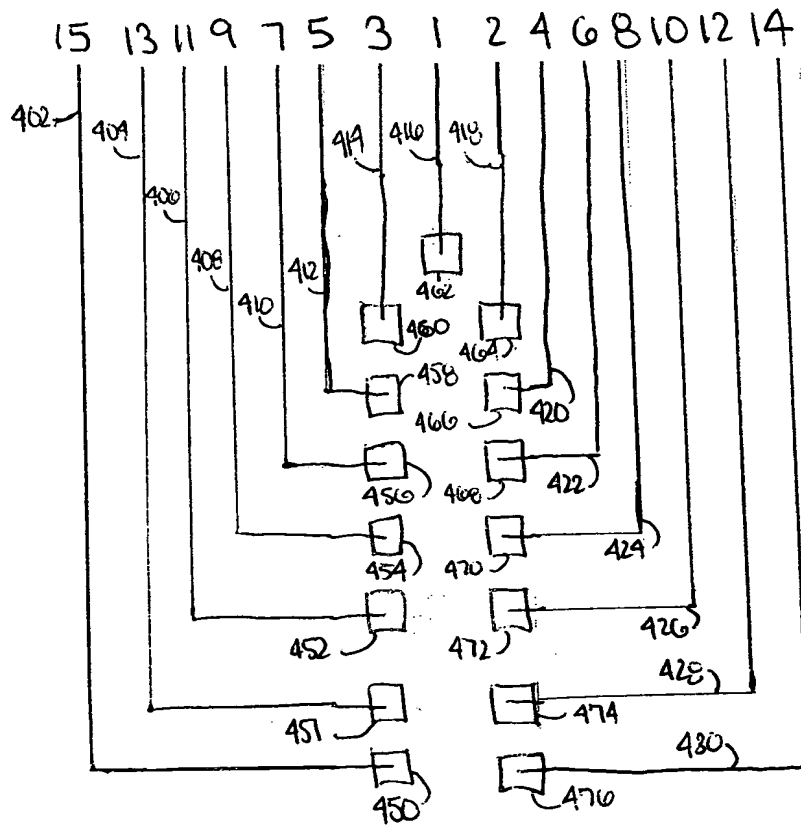 15 13 11 9 7 5 3 1 2 4 6 8 10 12 14
402 404 414 416 418
406
408 412 462
410 460 464
458 466 420
456 468 422
454 470 424
452 472 426
428
451 474
430
450 476